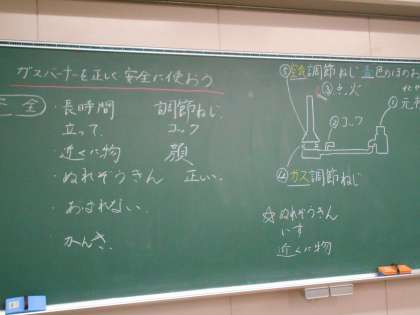 ガスバーナーを正しく安全に使おう
安全
・長時間
・立って、
・近くに物
・ぬれぞうきん
・あばれない
・かんき
調節ねじ
コック
顔
正しい
⑤空気調節ねじ 青色のほのお
③点火
①元
②コック
④ガス調節ねじ
☆ぬれぞうきん
いす
近くに物